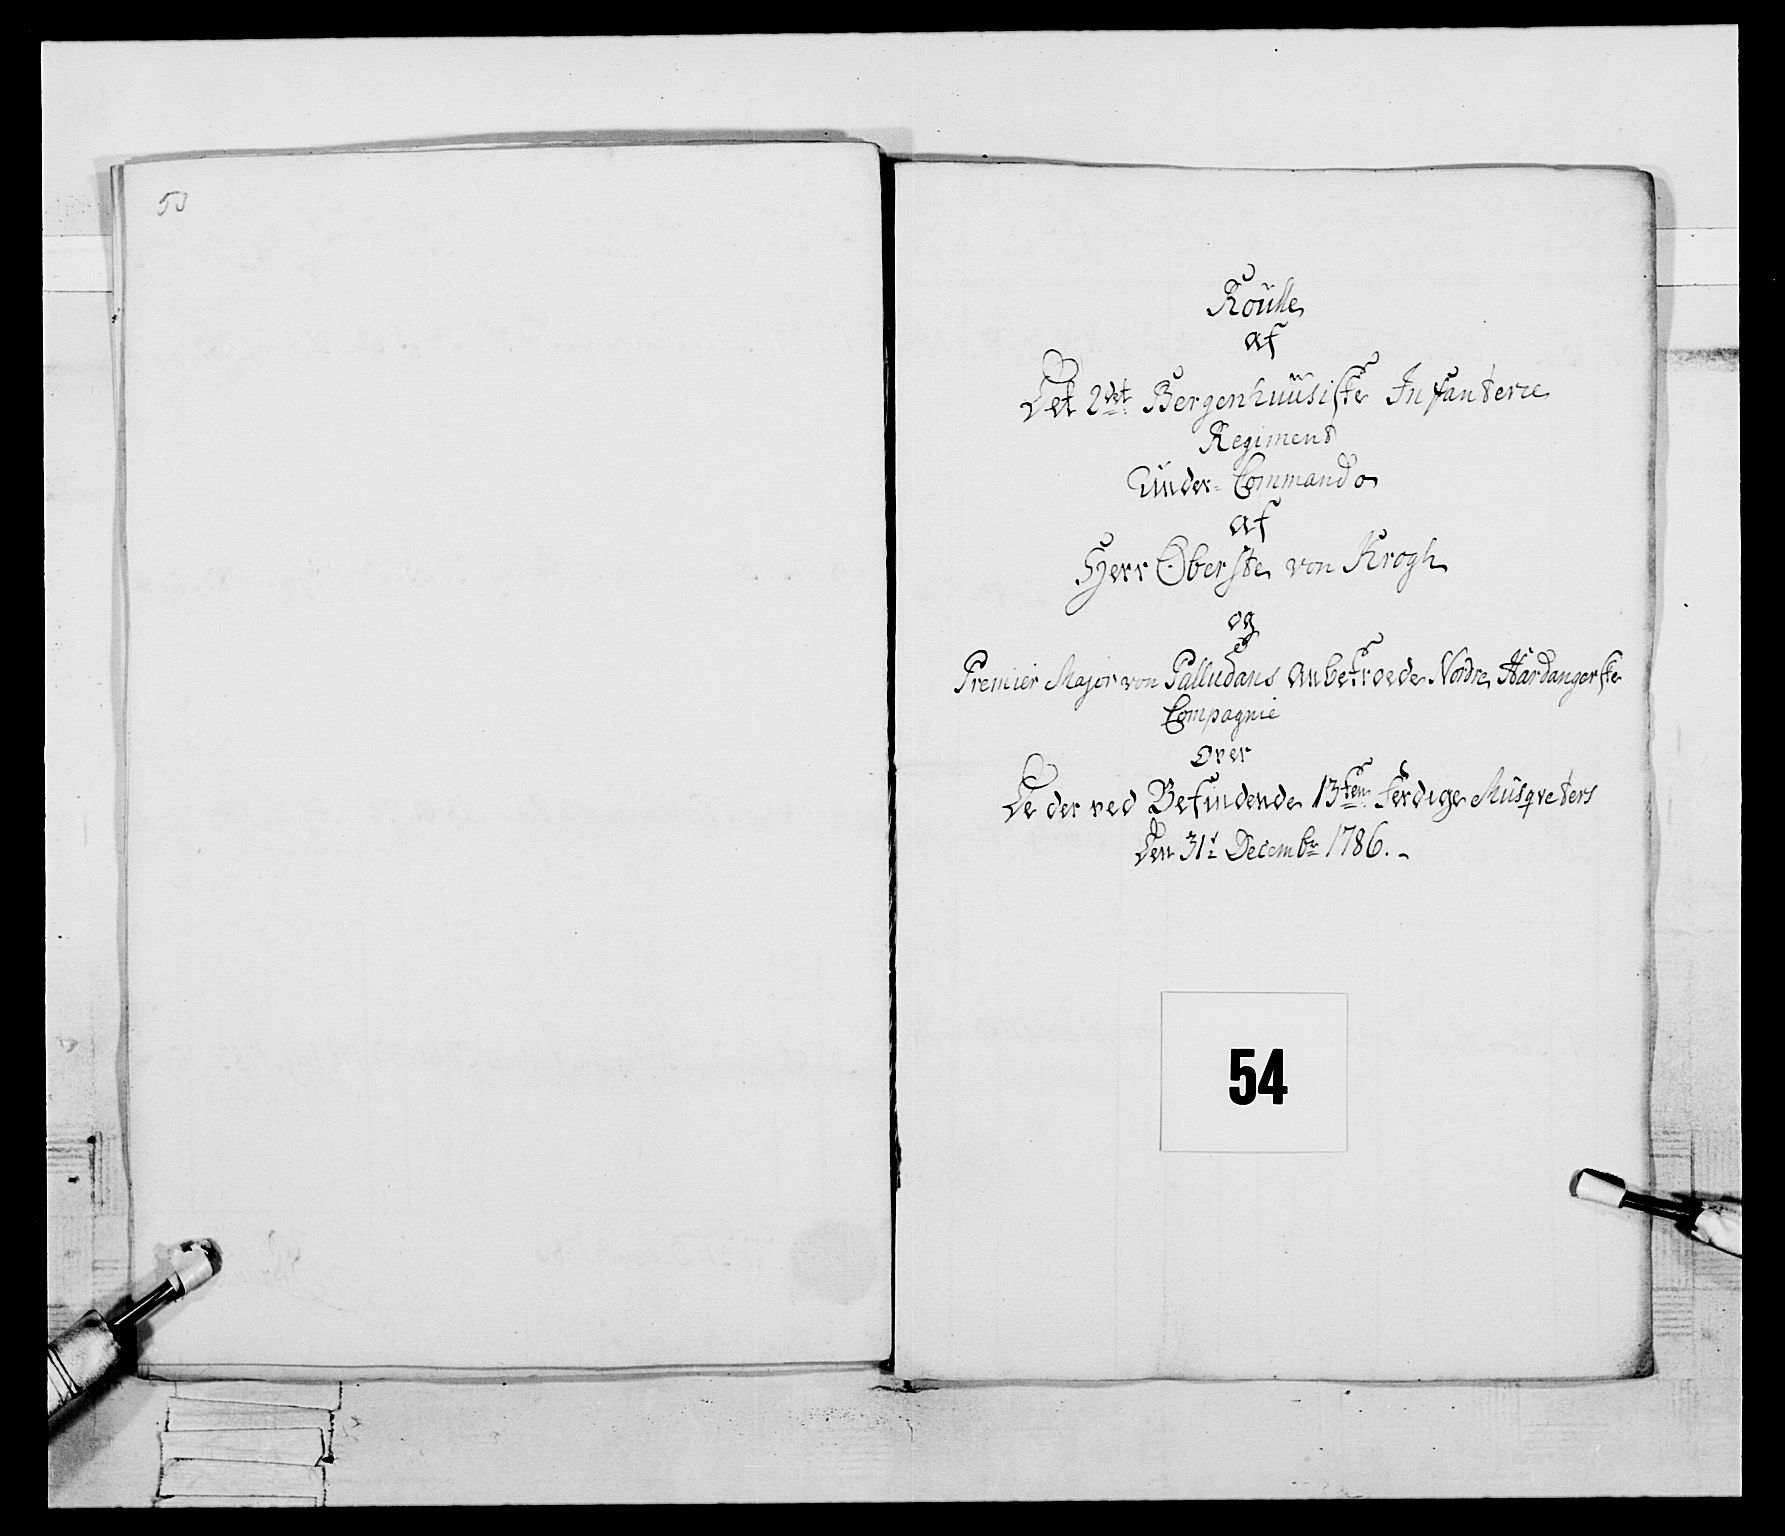 53
Roülle
af
Det 2det Bergenhuüsiske Infanterie
Regiment
Ünder-Commando
af
Herr Oberste von Krogh
og
Premier Major von Palludans anbetroede Nordre Hardangerske
Compagnie
over
De der ved Befindende 13ten ferdige Müsqveters
Den 31t Decembr 1786.-
54